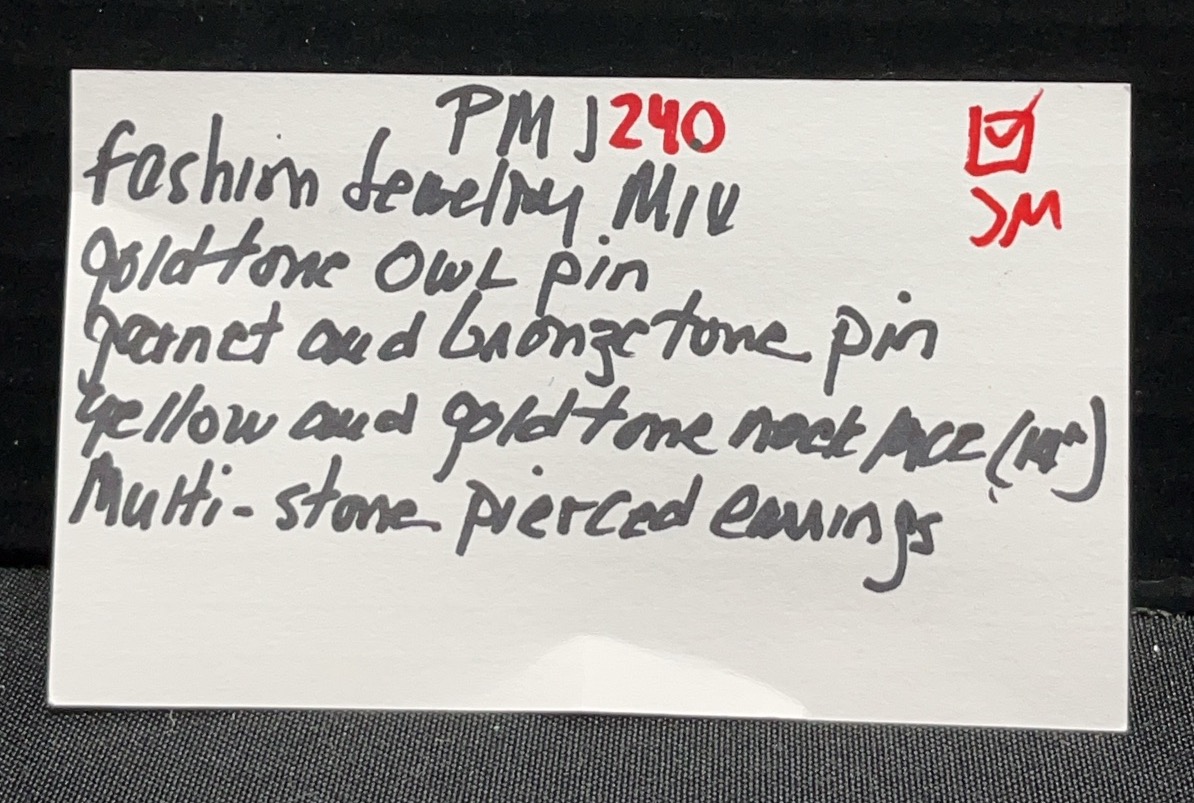 PMJ240
fashion Jewelry Mix
goldtone OWL pin
garnet and bronzetone pin
yellow and goldtone neck piece
Multi-stone pierced earrings
JM